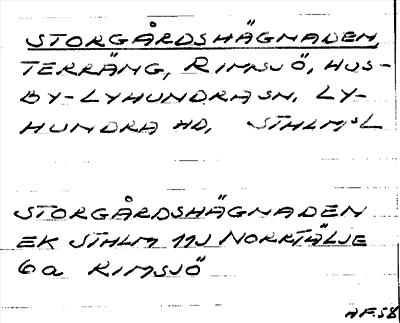 STORGÅRDSHÄGNADEN,
TERRÄNG, RIMSJÖ, HUS-
BY-LYHUNDRA SN, LY-
HUNDRA HD, STHLMS L
STORGÅRDSHÄGNADEN
EK STHLM 11J NORRTÄLJE
6a RIMSJÖ
AF58